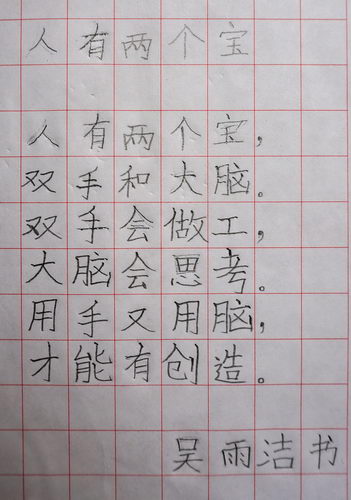 人有两个宝
人有两个宝，
双手和大脑。
双手会做工，
大脑会思考。
用手又用脑，
才能有创造。
吴雨洁书